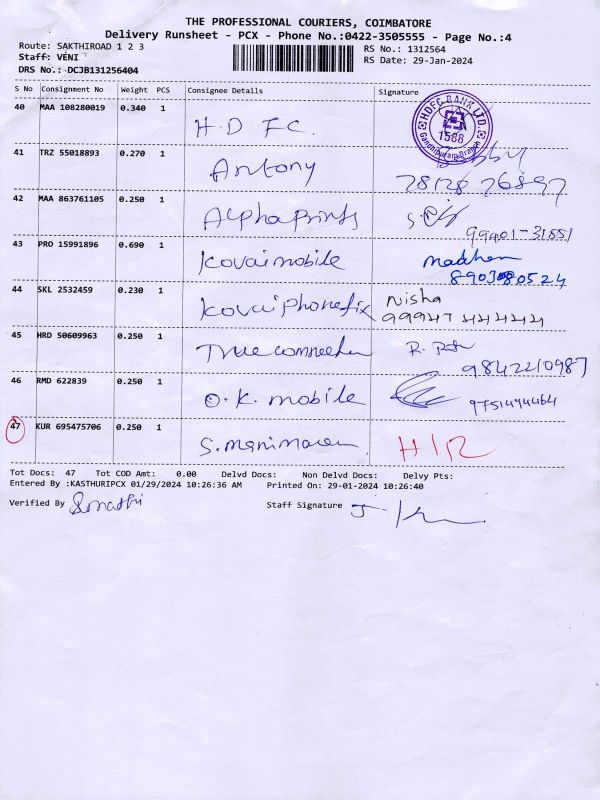 THE PROFESSIONAL COURIERS, COIMBATORE
Delivery Runsheet - PCX - Phone No.:0422-3505555 - Page No.:4
Route: SAKTHIROAD 1 2 3
RS No.: 1312564
Staff: VENI
RS Date: 29-Jan-2024
DRS No.: DCJB131256404
S No Consignment No Weight PCS Consignee Details Signature
40 MAA 108280019 0.340 1 H.D F.C. HDFC BANK LTD. 1588 Gandhipuram Branch
41 TRZ 55018893 0.270 1 Antony
78128 76897
42 MAA 863761105 0.250 1 Alphaprints
99401-31851
43 PRO 15991896 0.690 1 Kovaimobile
8903080524
44 SKL 2532459 0.230 1 Kovaiphonefix Nisha
99947 44444
45 HRD 50609963 0.250 1
9842210987
46 RMD 622839 0.250 1 O.K. mobile
9751494464
47 KUR 695475706 0.250 1 S.manimaran H/R
Tot Docs: 47 Tot COD Amt: 0.00 Delvd Docs: Non Delvd Docs: Delvy Pts:
Entered By :KASTHURIPCX 01/29/2024 10:26:36 AM Printed On: 29-01-2024 10:26:40
Verified By
Staff Signature